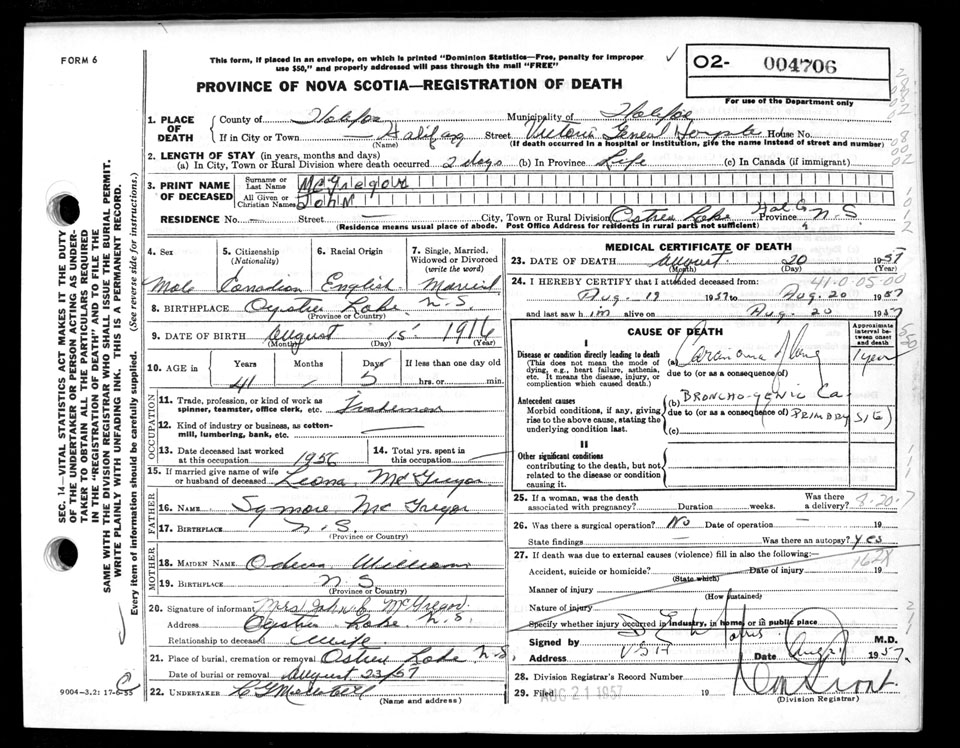 FORM 6
This form, if placed in an envelope, on which is printed "Dominion Statistics—Free, penalty for improper
use $50," and properly addressed will pass through the mail "FREE"
02- 004706
For use of the Department only
PROVINCE OF NOVA SCOTIA—REGISTRATION OF DEATH
1. PLACE OF DEATH
County of Halifax Municipality of Halifax
If in City or Town Halifax Street Victoria General Hospital House No.
(Name) (If death occurred in a hospital or institution, give the name instead of street and number)
2. LENGTH OF STAY (in years, months and days)
(a) In City, Town or Rural Division where death occurred 2 days (b) In Province Life (c) In Canada (if immigrant)
3. PRINT NAME OF DECEASED
Surname or Last Name McGregor
All Given or Christian Names John
RESIDENCE No. — Street — City, Town or Rural Division Oyster Lake Hal Co Province N.S.
(Residence means usual place of abode. Post Office Address for residents in rural parts not sufficient)
4. Sex Male
5. Citizenship (Nationality) Canadian
6. Racial Origin English
7. Single, Married, Widowed or Divorced (write the word) Married
8. BIRTHPLACE Oyster Lake N.S.
(Province or Country)
9. DATE OF BIRTH August 15 1916
(Month) (Day) (Year)
10. AGE in Years 41 Months — Days 5 If less than one day old hrs. or min.
OCCUPATION
11. Trade, profession, or kind of work as spinner, teamster, office clerk, etc. Fisherman
12. Kind of industry or business, as cotton-mill, lumbering, bank, etc. —
13. Date deceased last worked at this occupation 1956
14. Total yrs. spent in this occupation
15. If married give name of wife or husband of deceased Leona McGregor
FATHER
16. NAME McGregor
17. BIRTHPLACE N.S.
(Province or Country)
MOTHER
18. MAIDEN NAME William
19. BIRTHPLACE N.S.
(Province or Country)
20. Signature of informant Mrs John McGregor
Address Oyster Lake N.S.
Relationship to deceased Wife
21. Place of burial, cremation or removal Oyster Lake N.S.
Date of burial August 23/57
22. UNDERTAKER
(Name and address)
9004—3.2: 17-6-55
MEDICAL CERTIFICATE OF DEATH
23. DATE OF DEATH August 20 1957
(Month) (Day) (Year)
24. I HEREBY CERTIFY that I attended deceased from: 41-0-05-00
Aug. 19 1957 to Aug. 20 1957
and last saw him alive on Aug. 20 1957
CAUSE OF DEATH
Approximate interval between onset and death
I
Disease or condition directly leading to death (a) Carcinoma of lung 1 year
(This does not mean the mode of dying, e.g., heart failure, asthenia, etc. It means the disease, injury, or complication which caused death.)
due to (or as a consequence of)
Antecedent causes (b) BRONCHO-GENIC Ca
Morbid conditions, if any, giving rise to the above cause, stating the underlying condition last.
due to (or as a consequence of) (PRIMARY SITE)
(c)
II
Other significant conditions
contributing to the death, but not related to the disease or condition causing it.
25. If a woman, was the death associated with pregnancy? Duration weeks. Was there a delivery?
26. Was there a surgical operation? No Date of operation — 19
State findings — Was there an autopsy? Yes
27. If death was due to external causes (violence) fill in also the following:— 162X
Accident, suicide or homicide? Date of injury 19
(State which)
Manner of injury
(How sustained)
Nature of injury
Specify whether injury occurred in industry, in home, or in public place
Signed by M.D.
Address V G H Date Aug 1957
28. Division Registrar's Record Number
29. Filed AUG 21 1957 19
(Division Registrar)
SEC. 14—VITAL STATISTICS ACT MAKES IT THE DUTY
OF THE UNDERTAKER OR PERSON ACTING AS UNDER-
TAKER TO OBTAIN ALL THE PARTICULARS REQUIRED
IN THE "REGISTRATION OF DEATH" AND TO FILE THE
SAME WITH THE DIVISION REGISTRAR WHO SHALL ISSUE THE BURIAL PERMIT.
WRITE PLAINLY WITH UNFADING INK. THIS IS A PERMANENT RECORD.
Every item of information should be carefully supplied. (See reverse side for instructions.)